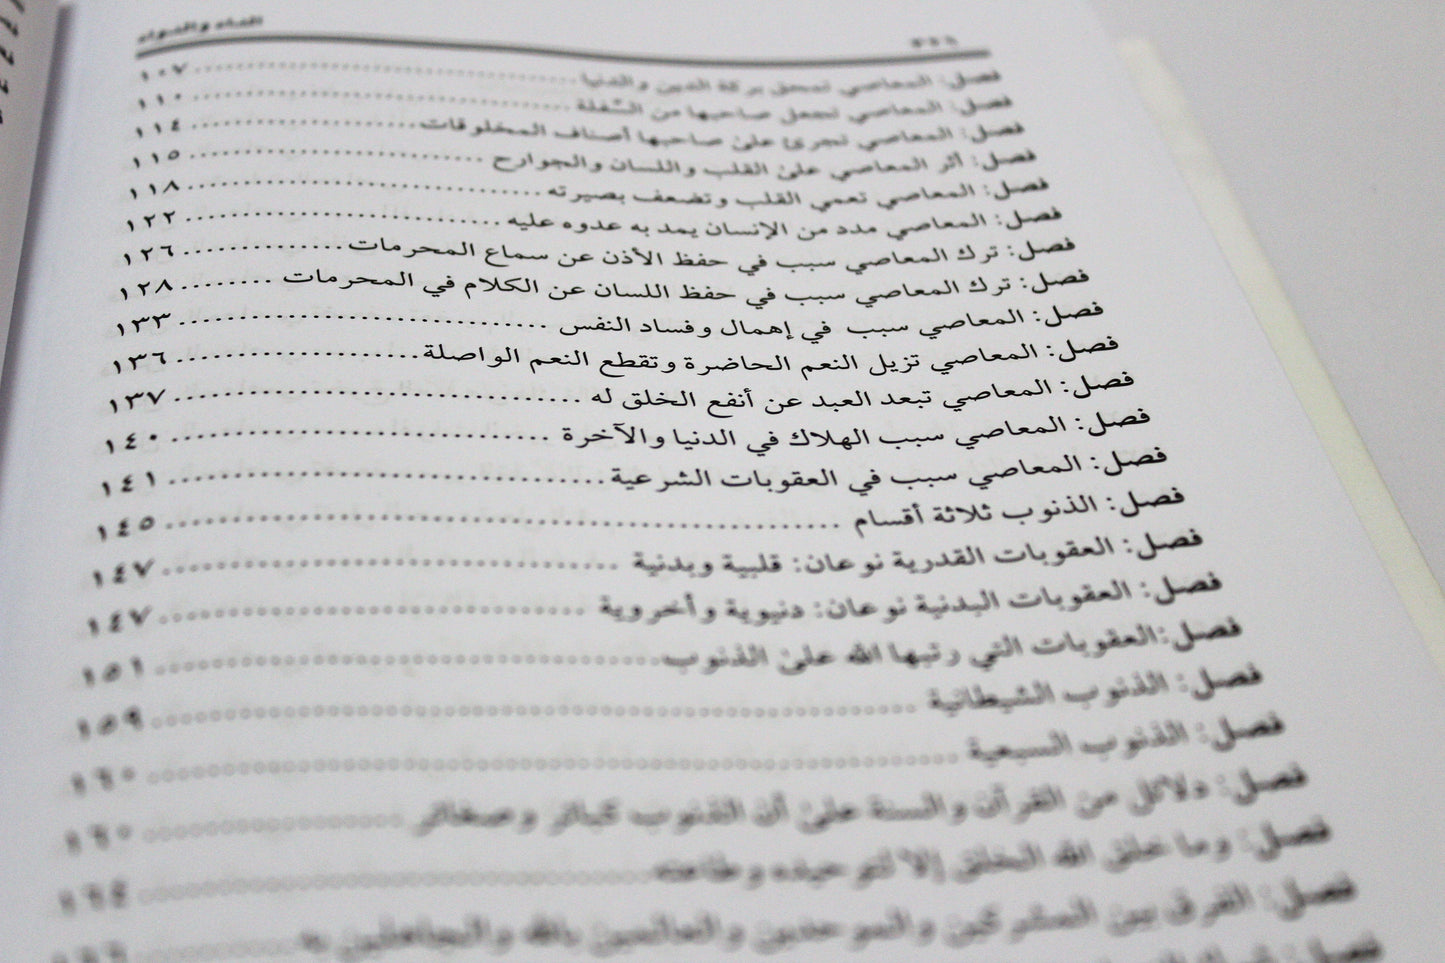 الداء والدواء
فصل: المعاصي تمحق بركة الدين والدنيا ١٠٧
فصل: المعاصي تجعل صاحبها من السَّفلة ١١٠
فصل: المعاصي تجرئ على صاحبها أصناف المخلوقات ١١٤
فصل: أثر المعاصي على القلب واللسان والجوارح ١١٥
فصل: المعاصي تعمي القلب وتضعف بصيرته ١١٨
فصل: المعاصي مدد من الإنسان يمد به عدوه عليه ١٢٢
فصل: ترك المعاصي سبب في حفظ الأذن عن سماع المحرمات ١٢٦
فصل: ترك المعاصي سبب في حفظ اللسان عن الكلام في المحرمات ١٢٨
فصل: المعاصي سبب في إهمال وفساد النفس ١٣٣
فصل: المعاصي تزيل النعم الحاضرة وتقطع النعم الواصلة ١٣٦
فصل: المعاصي تبعد العبد عن أنفع الخلق له ١٣٧
فصل: المعاصي سبب الهلاك في الدنيا والآخرة ١٤٠
فصل: المعاصي سبب في العقوبات الشرعية ١٤١
فصل: الذنوب ثلاثة أقسام ١٤٥
فصل: العقوبات القدرية نوعان: قلبية وبدنية ١٤٧
فصل: العقوبات البدنية نوعان: دنيوية وأخروية ١٤٧
فصل:العقوبات التي رتبها الله على الذنوب ١٥١
فصل: الذنوب الشيطانية ١٥٩
فصل: الذنوب السبعية ١٦٠
فصل: دلائل من القرآن والسنة على أن الذنوب كبائر وصغائر ١٦٠
فصل: وما خلق الله الخلق إلا لتوحيده وطاعته ١٦٤
فصل: الفرق بين المشركين والموحدين والعالمين بالله والجاهلين به